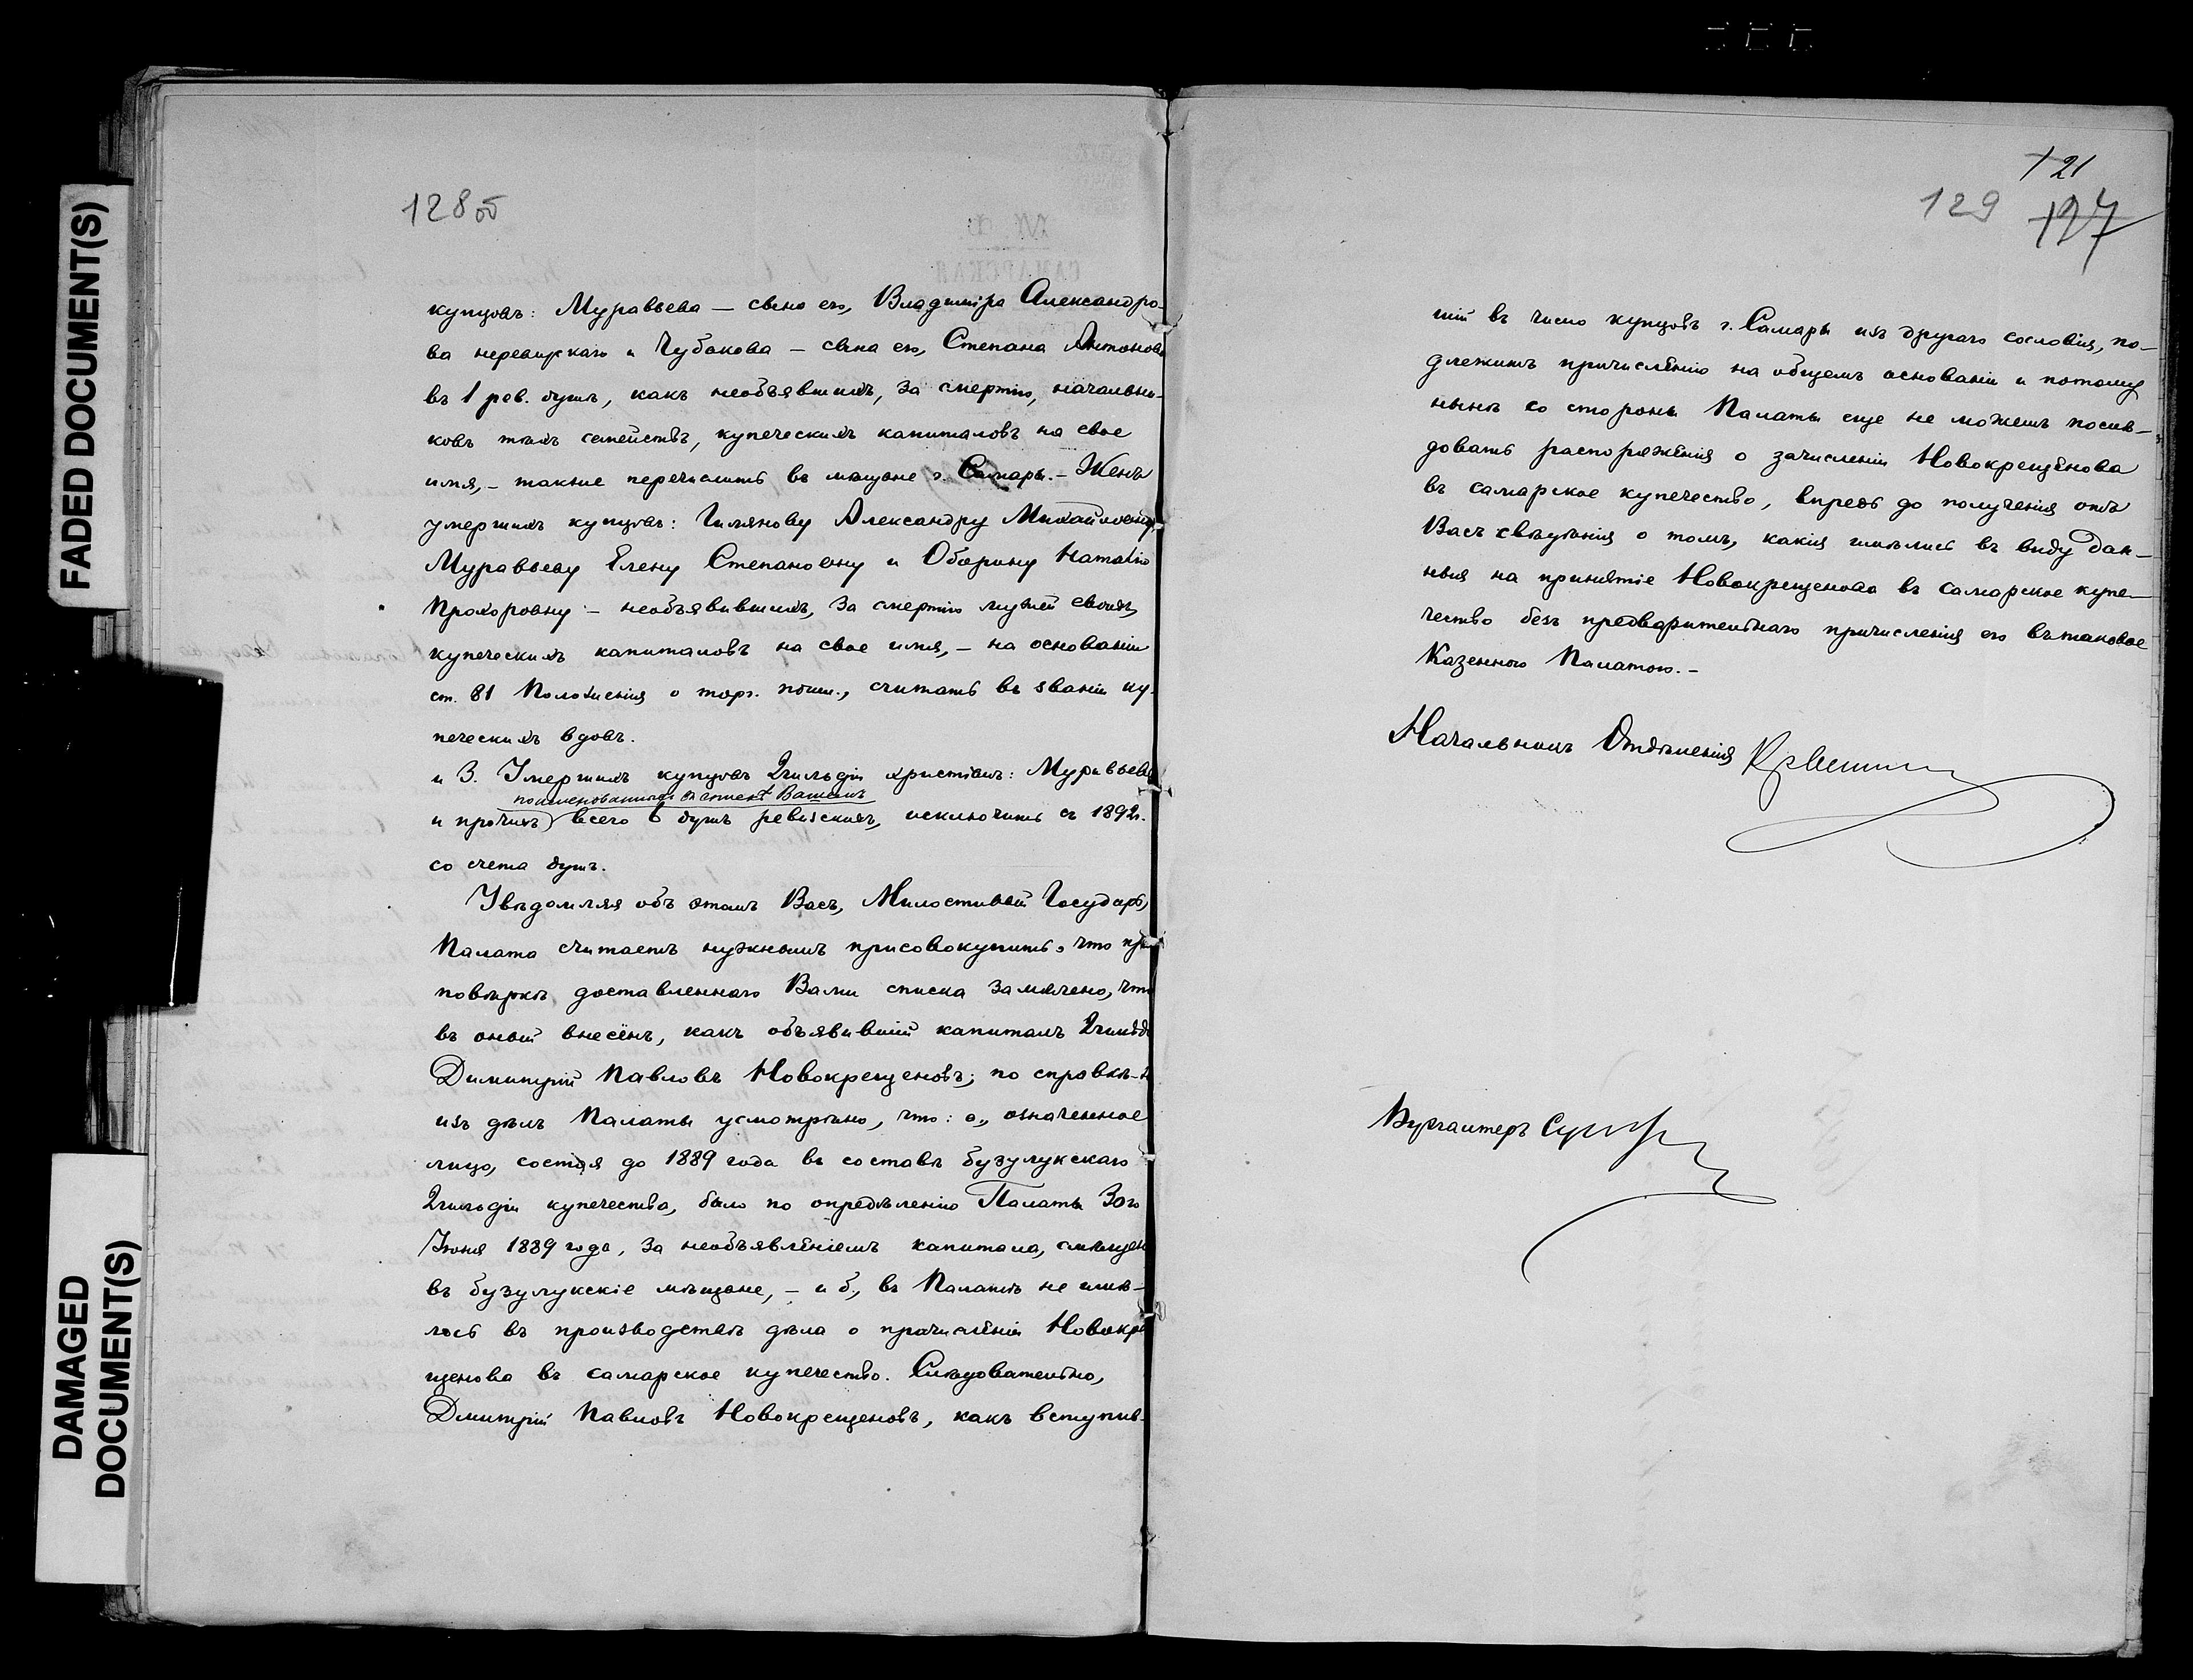 FADED DOCUMENT(S)
DAMAGED
DOCUMENT(S)
128 об
купцовъ: Муравьева — сына его, Владиміра Александро-
ва неревизскаго и Чубакова — сына его, Степана Антонова
въ 1 рев. душѣ, какъ необъявшихъ, за смертію, начальни-
ковъ тѣхъ семействъ, купеческихъ капиталовъ на свое
имя, – также перечислить въ мѣщане г. Самары. – Женъ
умершихъ купцовъ: Александру Михайловну,
Муравьеву Елену Степановну и Оборину Наталію
Прохоровну – необъявившихъ, за смертію мужей своихъ,
купеческихъ капиталовъ на свое имя, – на основаніи
ст. 81 Положенія о торг. пошл., считать въ званіи ку-
печескихъ вдовъ.
и 3. Умершихъ купцовъ 2 гильдіи христіанъ: Муравьева
поименованныхъ въ спискѣ Вашемъ
и прочихъ) всего 6 душъ ревизскихъ, исключить съ 1892 г.
со счета душъ.
Увѣдомляя объ этомъ Васъ, Милостивый Государь,
Палата считаетъ нужнымъ присовокупить, что при
повѣркѣ доставленнаго Вами списка замѣчено, что
въ оный внесёнъ, какъ объявившій капиталъ 2 гильдіи
Димитрій Павловъ Новокрещеновъ; по справкѣ
изъ дѣлъ Палаты усмотрѣно, что: а., означенное
лицо, состоя до 1889 года въ составѣ бузулукскаго
2 гильдіи купечества, было по опредѣленію Палаты 30го
Іюня 1889 года, за необъявленіемъ капитала, смѣщен
въ бузулукскіе мѣщане, – и б., въ Палатѣ не имѣ-
лось въ производствѣ дѣла о причисленіи Новокре
щенова въ самарское купечество. Слѣдовательно,
Дмитрій Павловъ Новокрещеновъ, какъ вступив-
121
129 127
шій въ число купцовъ г. Самары изъ другаго сословія, по-
длежитъ причисленію на общемъ основаніи и потому
нынѣ со стороны Палаты еще не можетъ послѣ-
довать распоряженія о зачисленіи Новокрещенова
въ самарское купечество, впредь до полученія отъ
Васъ свѣдѣнія о томъ, какія имѣлись въ виду дан-
ныя на принятіе Новокрещенова въ самарское купе-
чество безъ предварительнаго причисленія его въ таковое
Казенною Палатою. –
Начальникъ Отдѣленія
Бухгалтеръ